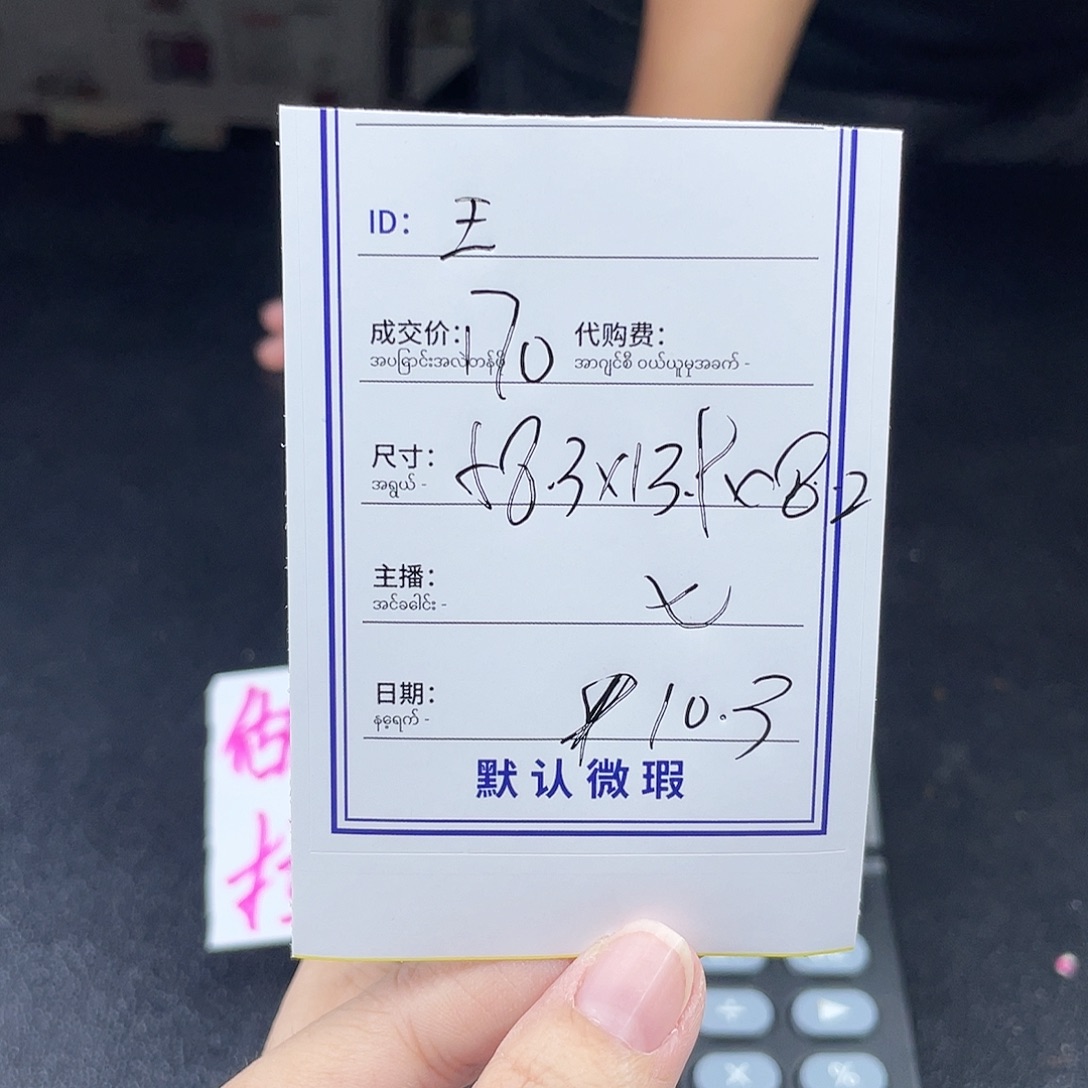 ID: 王
成交价: 170 代购费:
အပြောင်းအလဲတန်ဖိုး အာဂျင်စီ ဝယ်ယူမှုအခက် -
尺寸: 58.3x13.8x8.2
အရွယ် -
主播:
အင်ခေါင်း -
日期: 10.3
နေ့ရက် -
默认微瑕
估